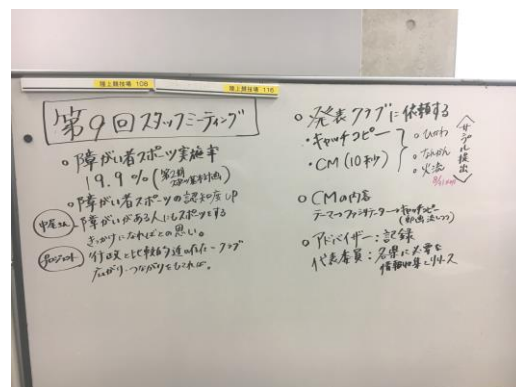 陸上競技場 108
陸上競技場 116
第9回スタッフミーティング
○障がい者スポーツ実施率
19.9%(第2期スポーツ基本計画)
○障がい者スポーツの認知度UP
障がいがある人にもスポーツをする
きっかけになればとの思い。
行政と比較的
クラブ
広がり・つながりをもてれば。
○発表クラブに依頼する
・キャッチコピー
・CM(10秒)
○ひかわ
○火流
サンプル提出
○CMの内容
キャッチコピー
○アドバイザー:記録
代表委員:各県に必要な
情報収集とリリース